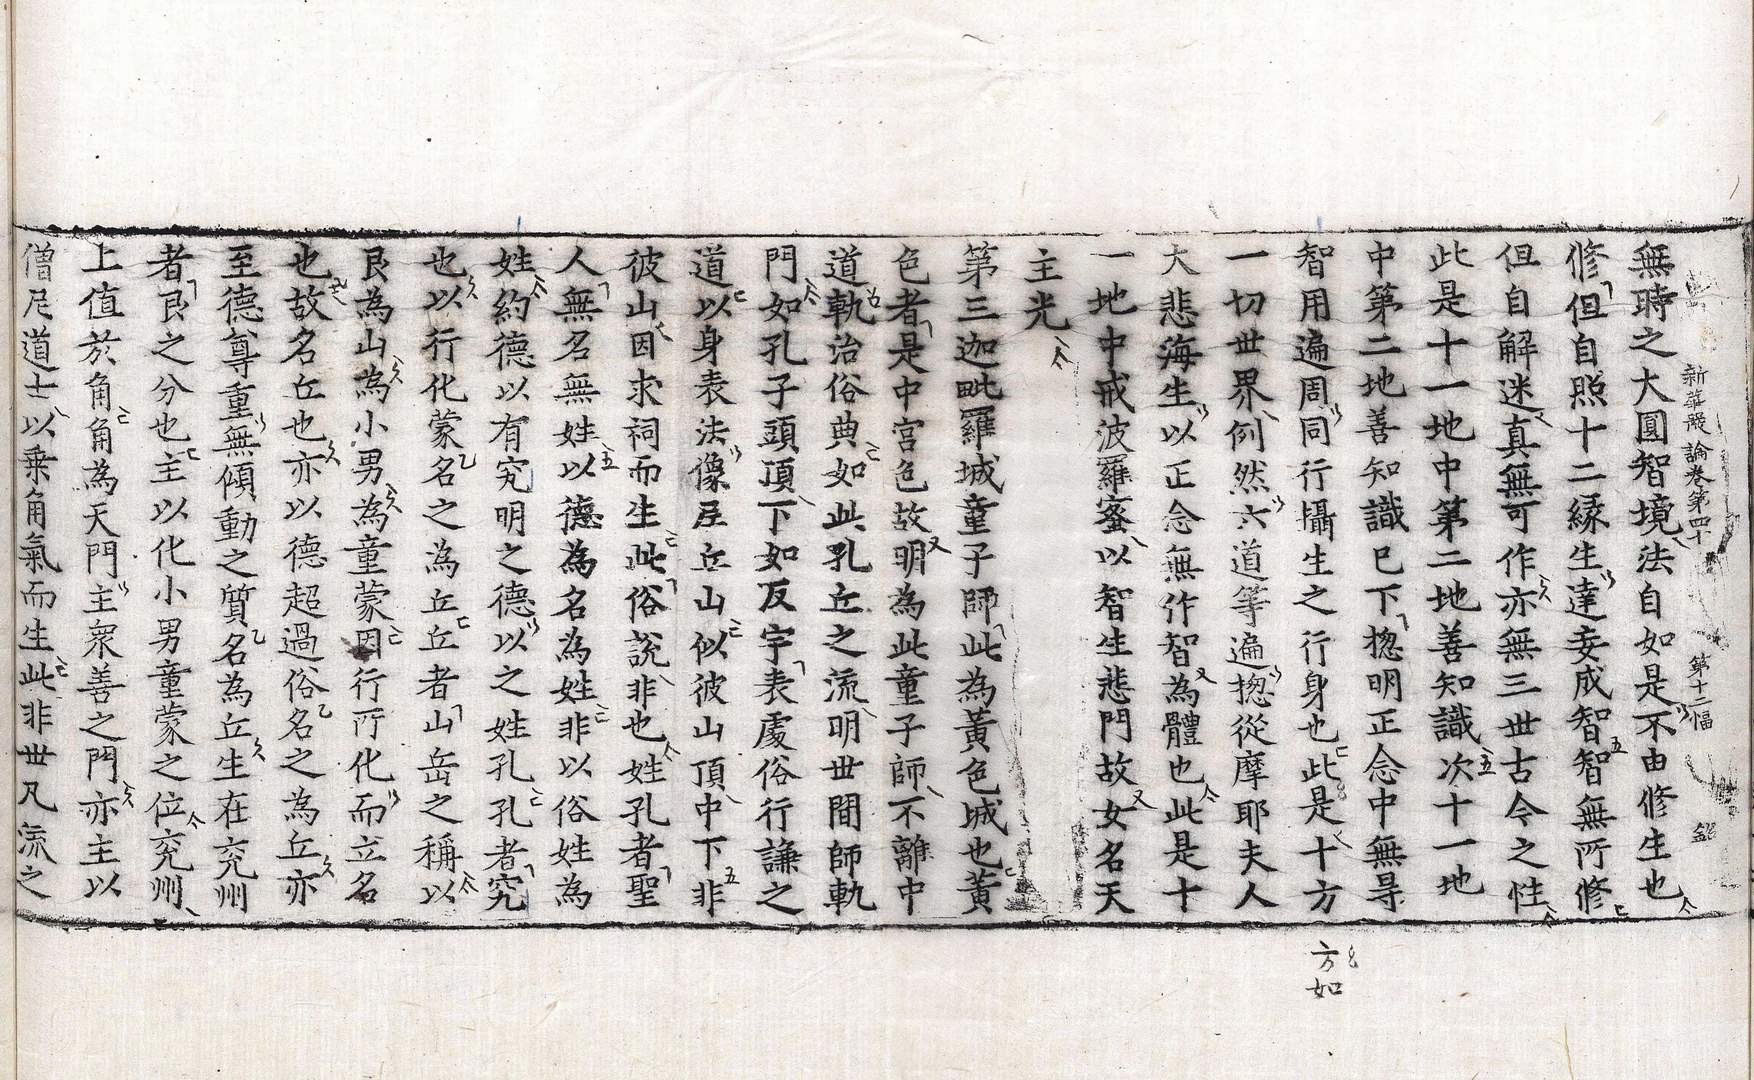 新華嚴論卷第四十 第十二幅
無時之大圓智境法自如是不由修生也
修但自照十二緣生達妄成智智無所修
但自解迷真無可作亦無三世古今之性
此是十一地中第二地善知識次十一地
中第二地善知識已下揔明正念中無㝵
智用遍周同行攝生之行身也此是十方
一切世界例然六道等遍揔從摩耶夫人
大悲海生以正念無作智為體也此是十
一地中戒波羅蜜以智生悲門故女名天
主光
第三迦毗羅城童子師此為黃色城也黃
色者是中宮色故明為此童子師不離中
道軌治俗典如此孔丘之流明世間師軌
門如孔子頭頂下如反宇表處俗行謙之
道以身表法像𡰱丘山似彼山頂中下非
彼山因求祠而生此俗說非也姓孔者聖
人無名無姓以德為名為姓非以俗姓為
姓約德以有究明之德以之姓孔孔者究
也以行化蒙名之為丘丘者山岳之稱以
艮為山為小男為童蒙因行所化而立名
也故名丘也亦以德超過俗名之為丘亦
至德尊重無傾動之質名為丘生在兖州
者艮之分也主以化小男童蒙之位兖州
上值於角角為天門主衆善之門亦主以
僧尼道士以乗角氣而生此非世凡流之
方如